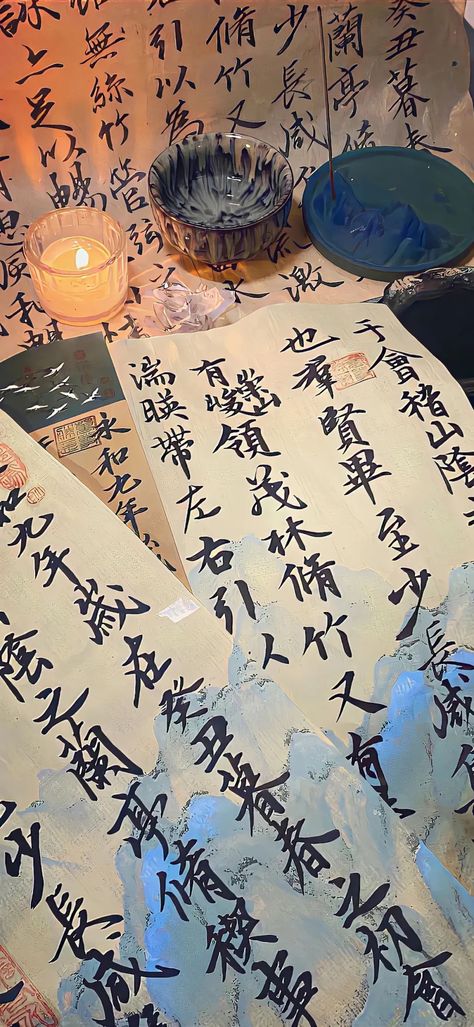 癸丑暮春
蘭亭脩
少長咸
脩竹又
激
引以為
無絲竹管弦
詠亦足以暢
于會稽山陰
也羣賢畢至少長咸集
有崇山峻領茂林脩竹又有
湍暎帶左右引以
永和九年
和九年歲在癸丑暮春之初會
陰之蘭亭脩禊事
少長咸